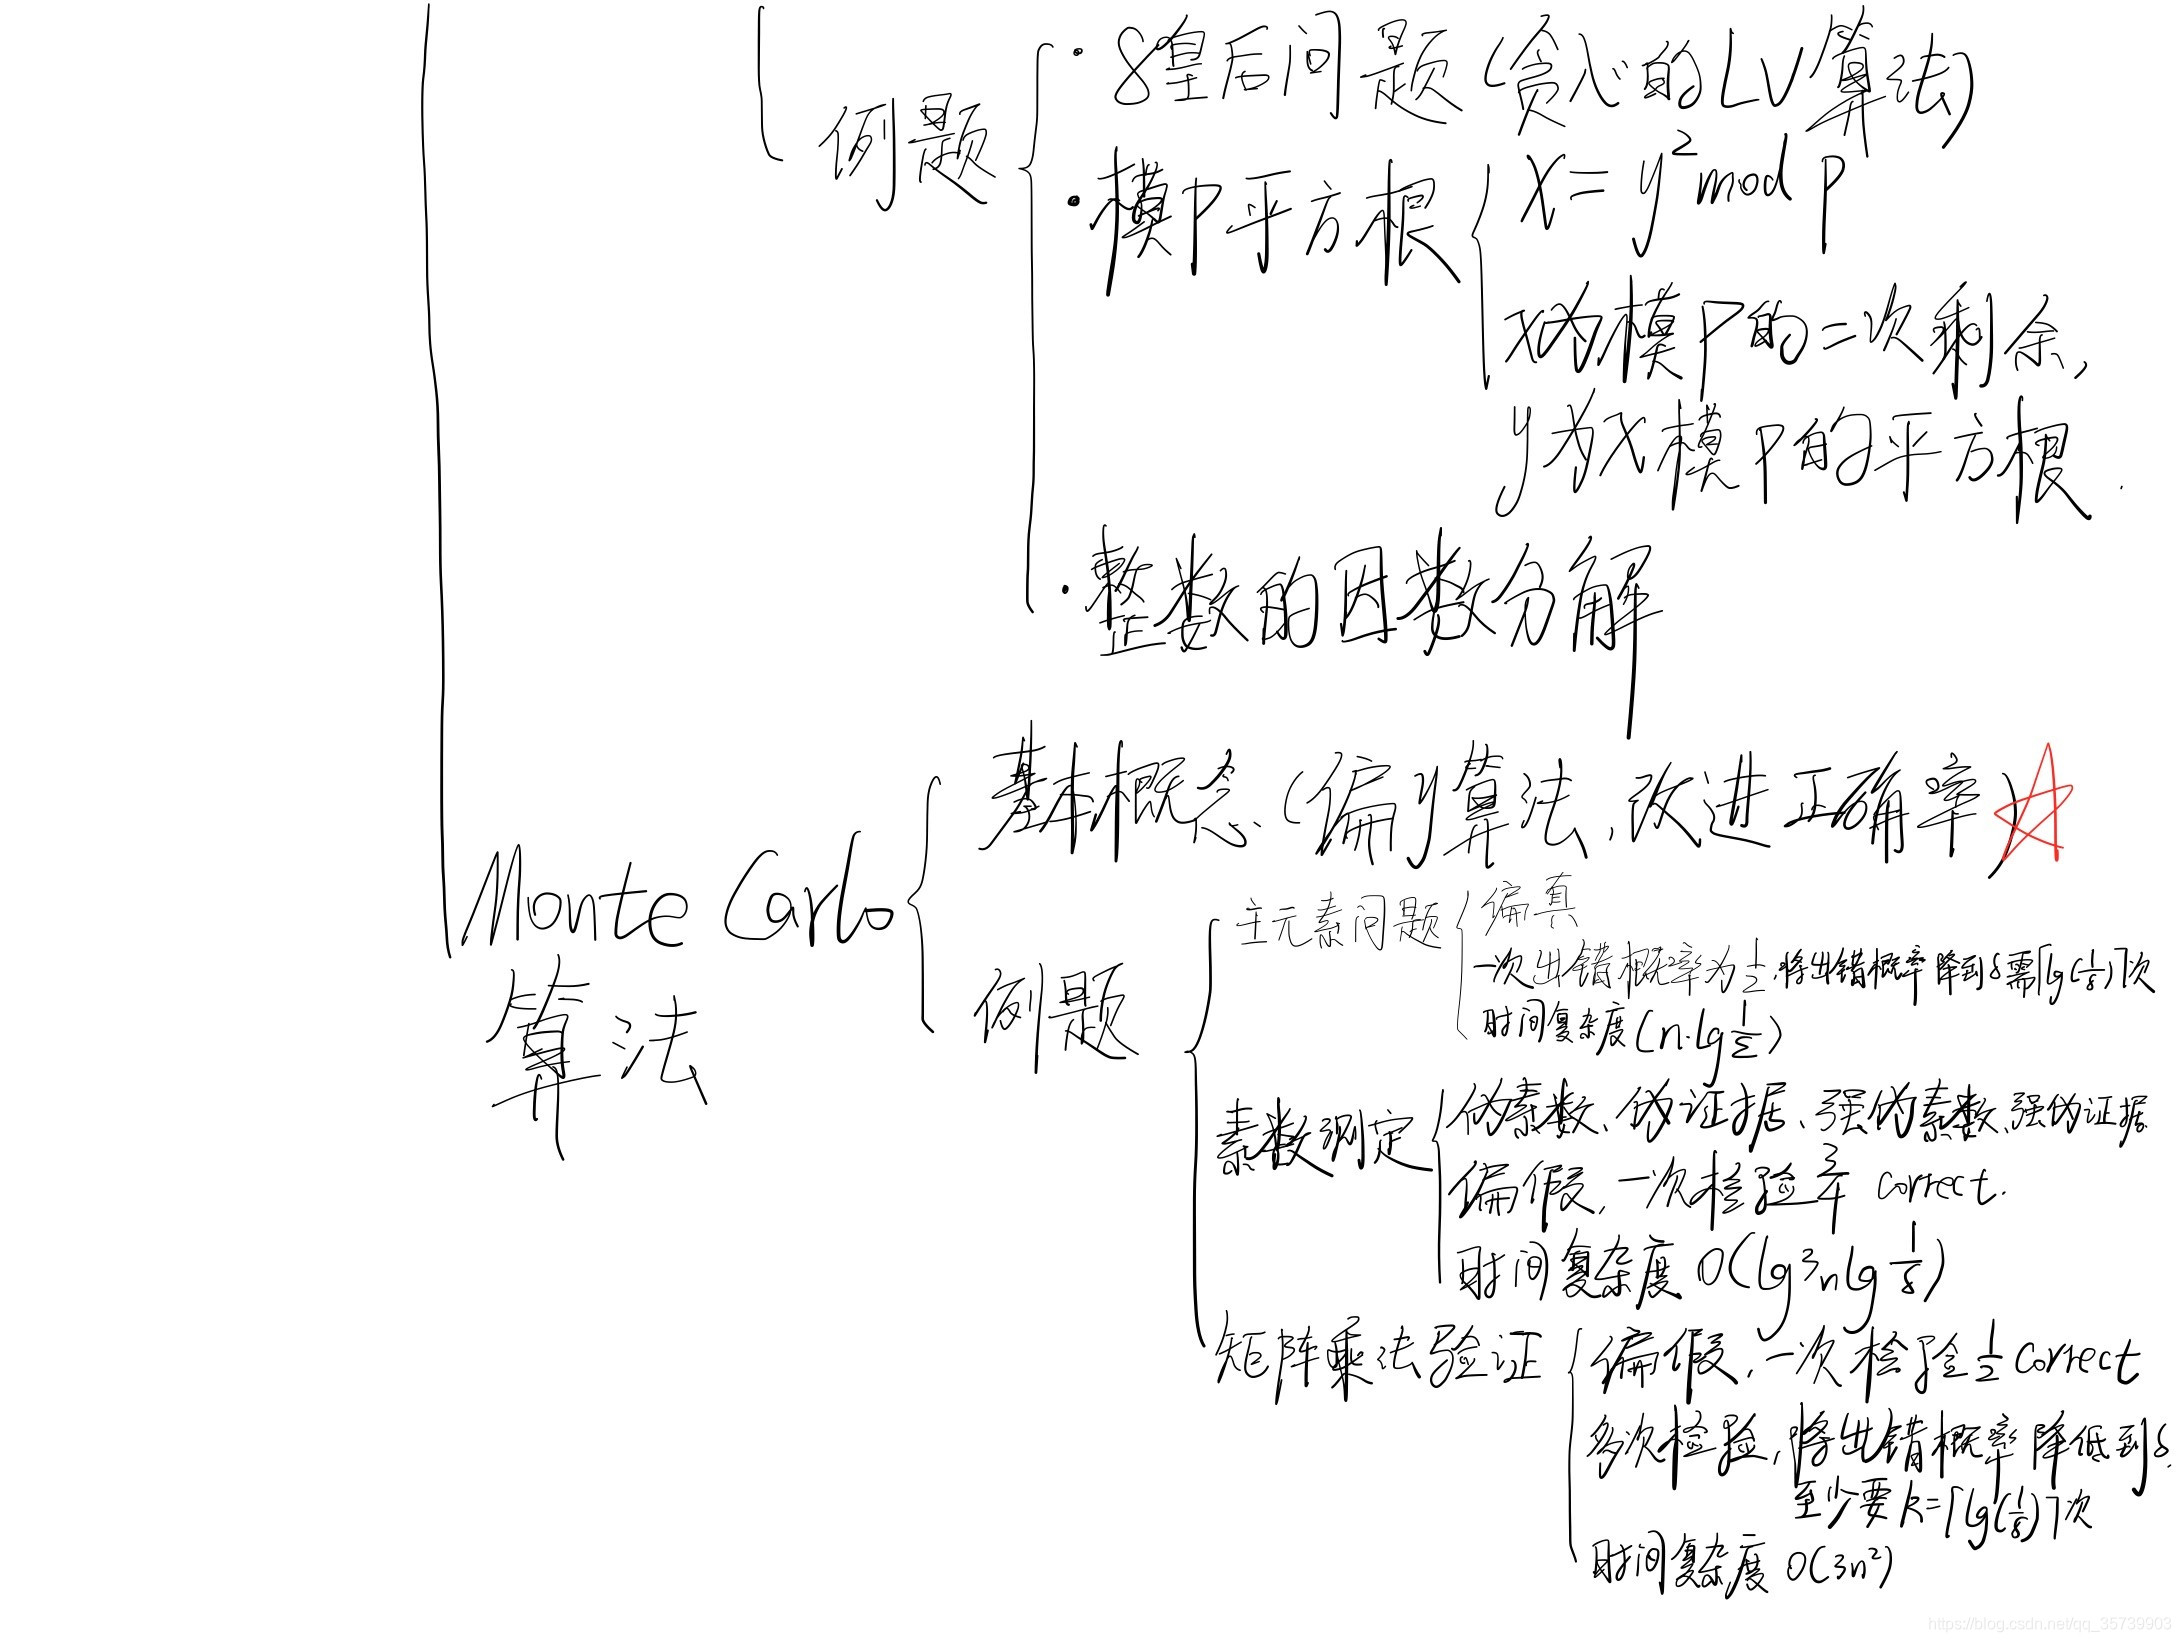 例题
·8皇后问题(贪心的LV算法)
·模p平方根
x=y²mod p
x为模p的二次剩余,
y为x模p的平方根.
·整数的因数分解
Monte Carlo
算法
基本概念(偏y算法,改进正确率)☆
例题
主元素问题
偏真
一次出错概率为1/2,将出错概率降到δ需⌈lg(1/δ)⌉次
时间复杂度(n·lg 1/ε)
素数测定
伪素数、伪证据、强伪素数、强伪证据
偏假,一次检验3/4 correct.
时间复杂度 O(lg³n lg 1/δ)
矩阵乘法验证
偏假,一次检验1/2 correct
多次检验,将出错概率降低到δ,
至少要k=⌈lg(1/δ)⌉次
时间复杂度 O(3n²)
https://blog.csdn.net/qq_35739903